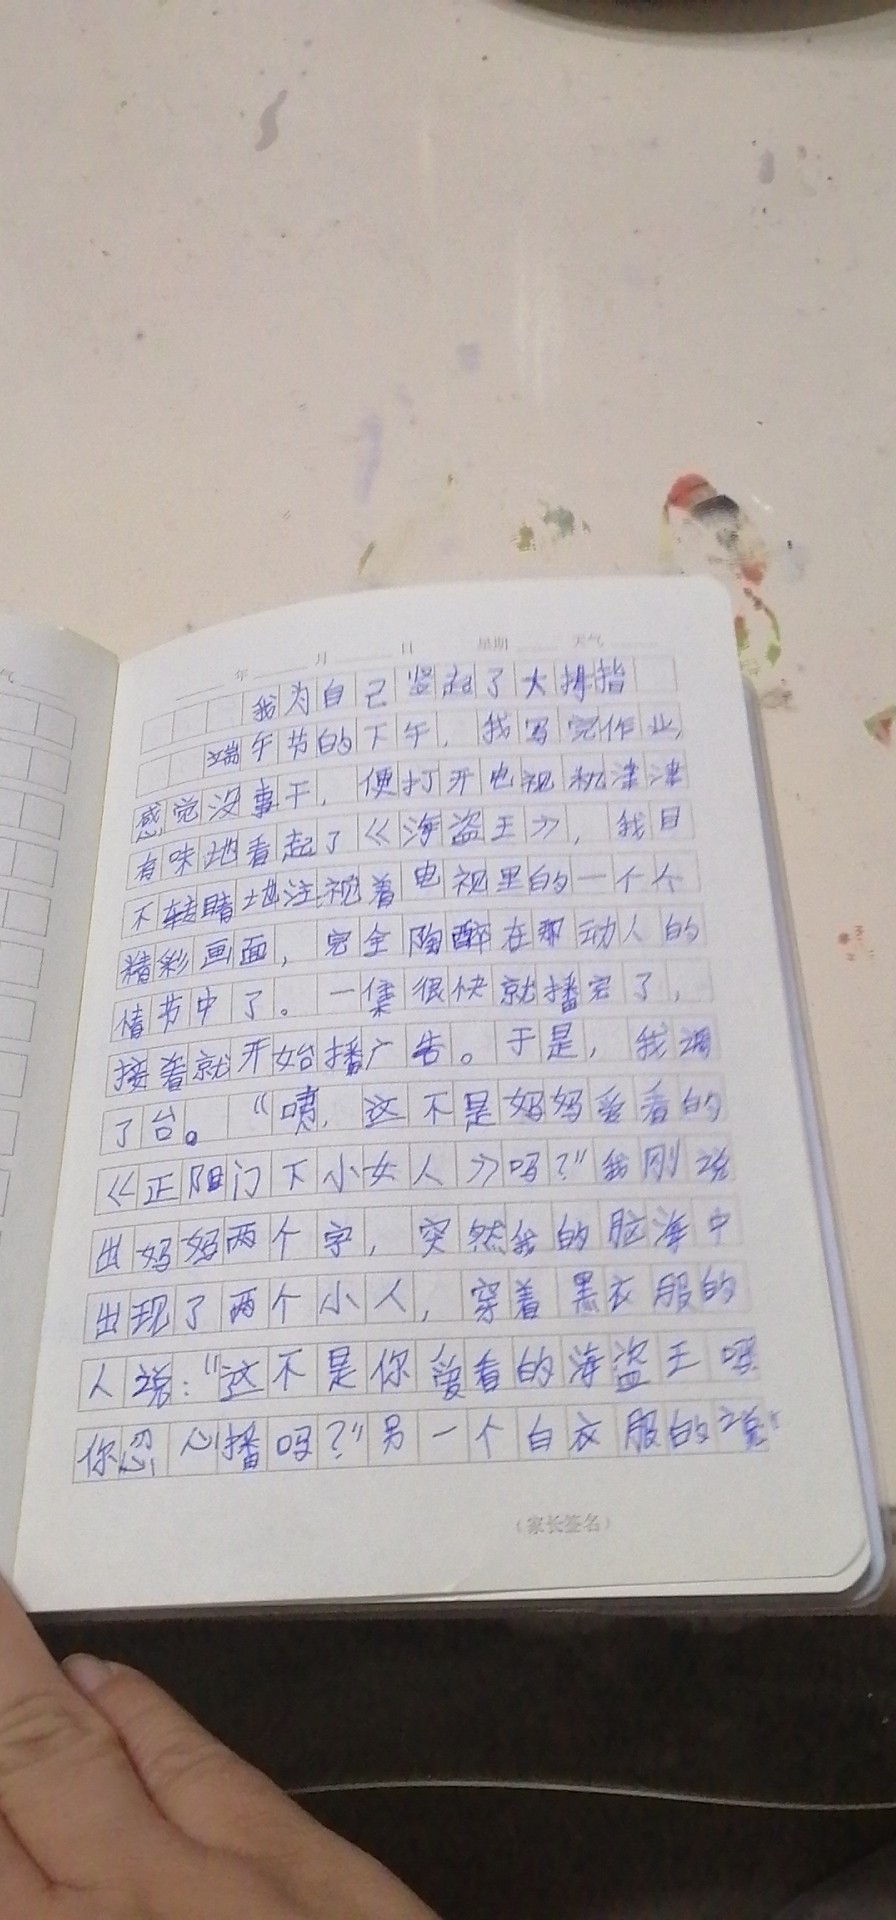 气
年 月 日 星期 天气
我为自己竖起了大拇指
端午节的下午，我写完作业，
感觉没事干，便打开电视机津津
有味地看起了《海盗王》，我目
不转睛地注视着电视里的一个个
精彩画面，完全陶醉在那动人的
情节中了。一集很快就播完了，
接着就开始播广告。于是，我调
了台。“咦，这不是妈妈爱看的
《正阳门下小女人》吗？”我刚说
出妈妈两个字，突然我的脑海中
出现了两个小人，穿着黑衣服的
人说：“这不是你爱看的海盗王吗
你忍心播吗？”另一个白衣服的说：
（家长签名）